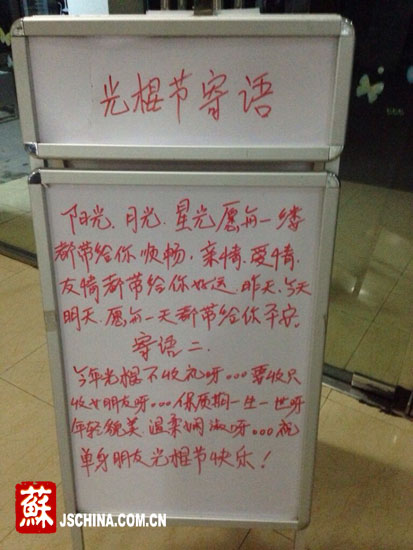 光棍节寄语
阳光、月光、星光愿每一缕
都带给你顺畅，亲情、爱情、
友情都带给你好运，昨天、今天
明天、愿每一天都带给你平安。
寄语二、
今年光棍不收礼呀…要收只
收女朋友呀…保质期一生一世呀
年轻貌美温柔娴淑呀…祝
单身朋友光棍节快乐！
蘇 JSCHINA.COM.CN